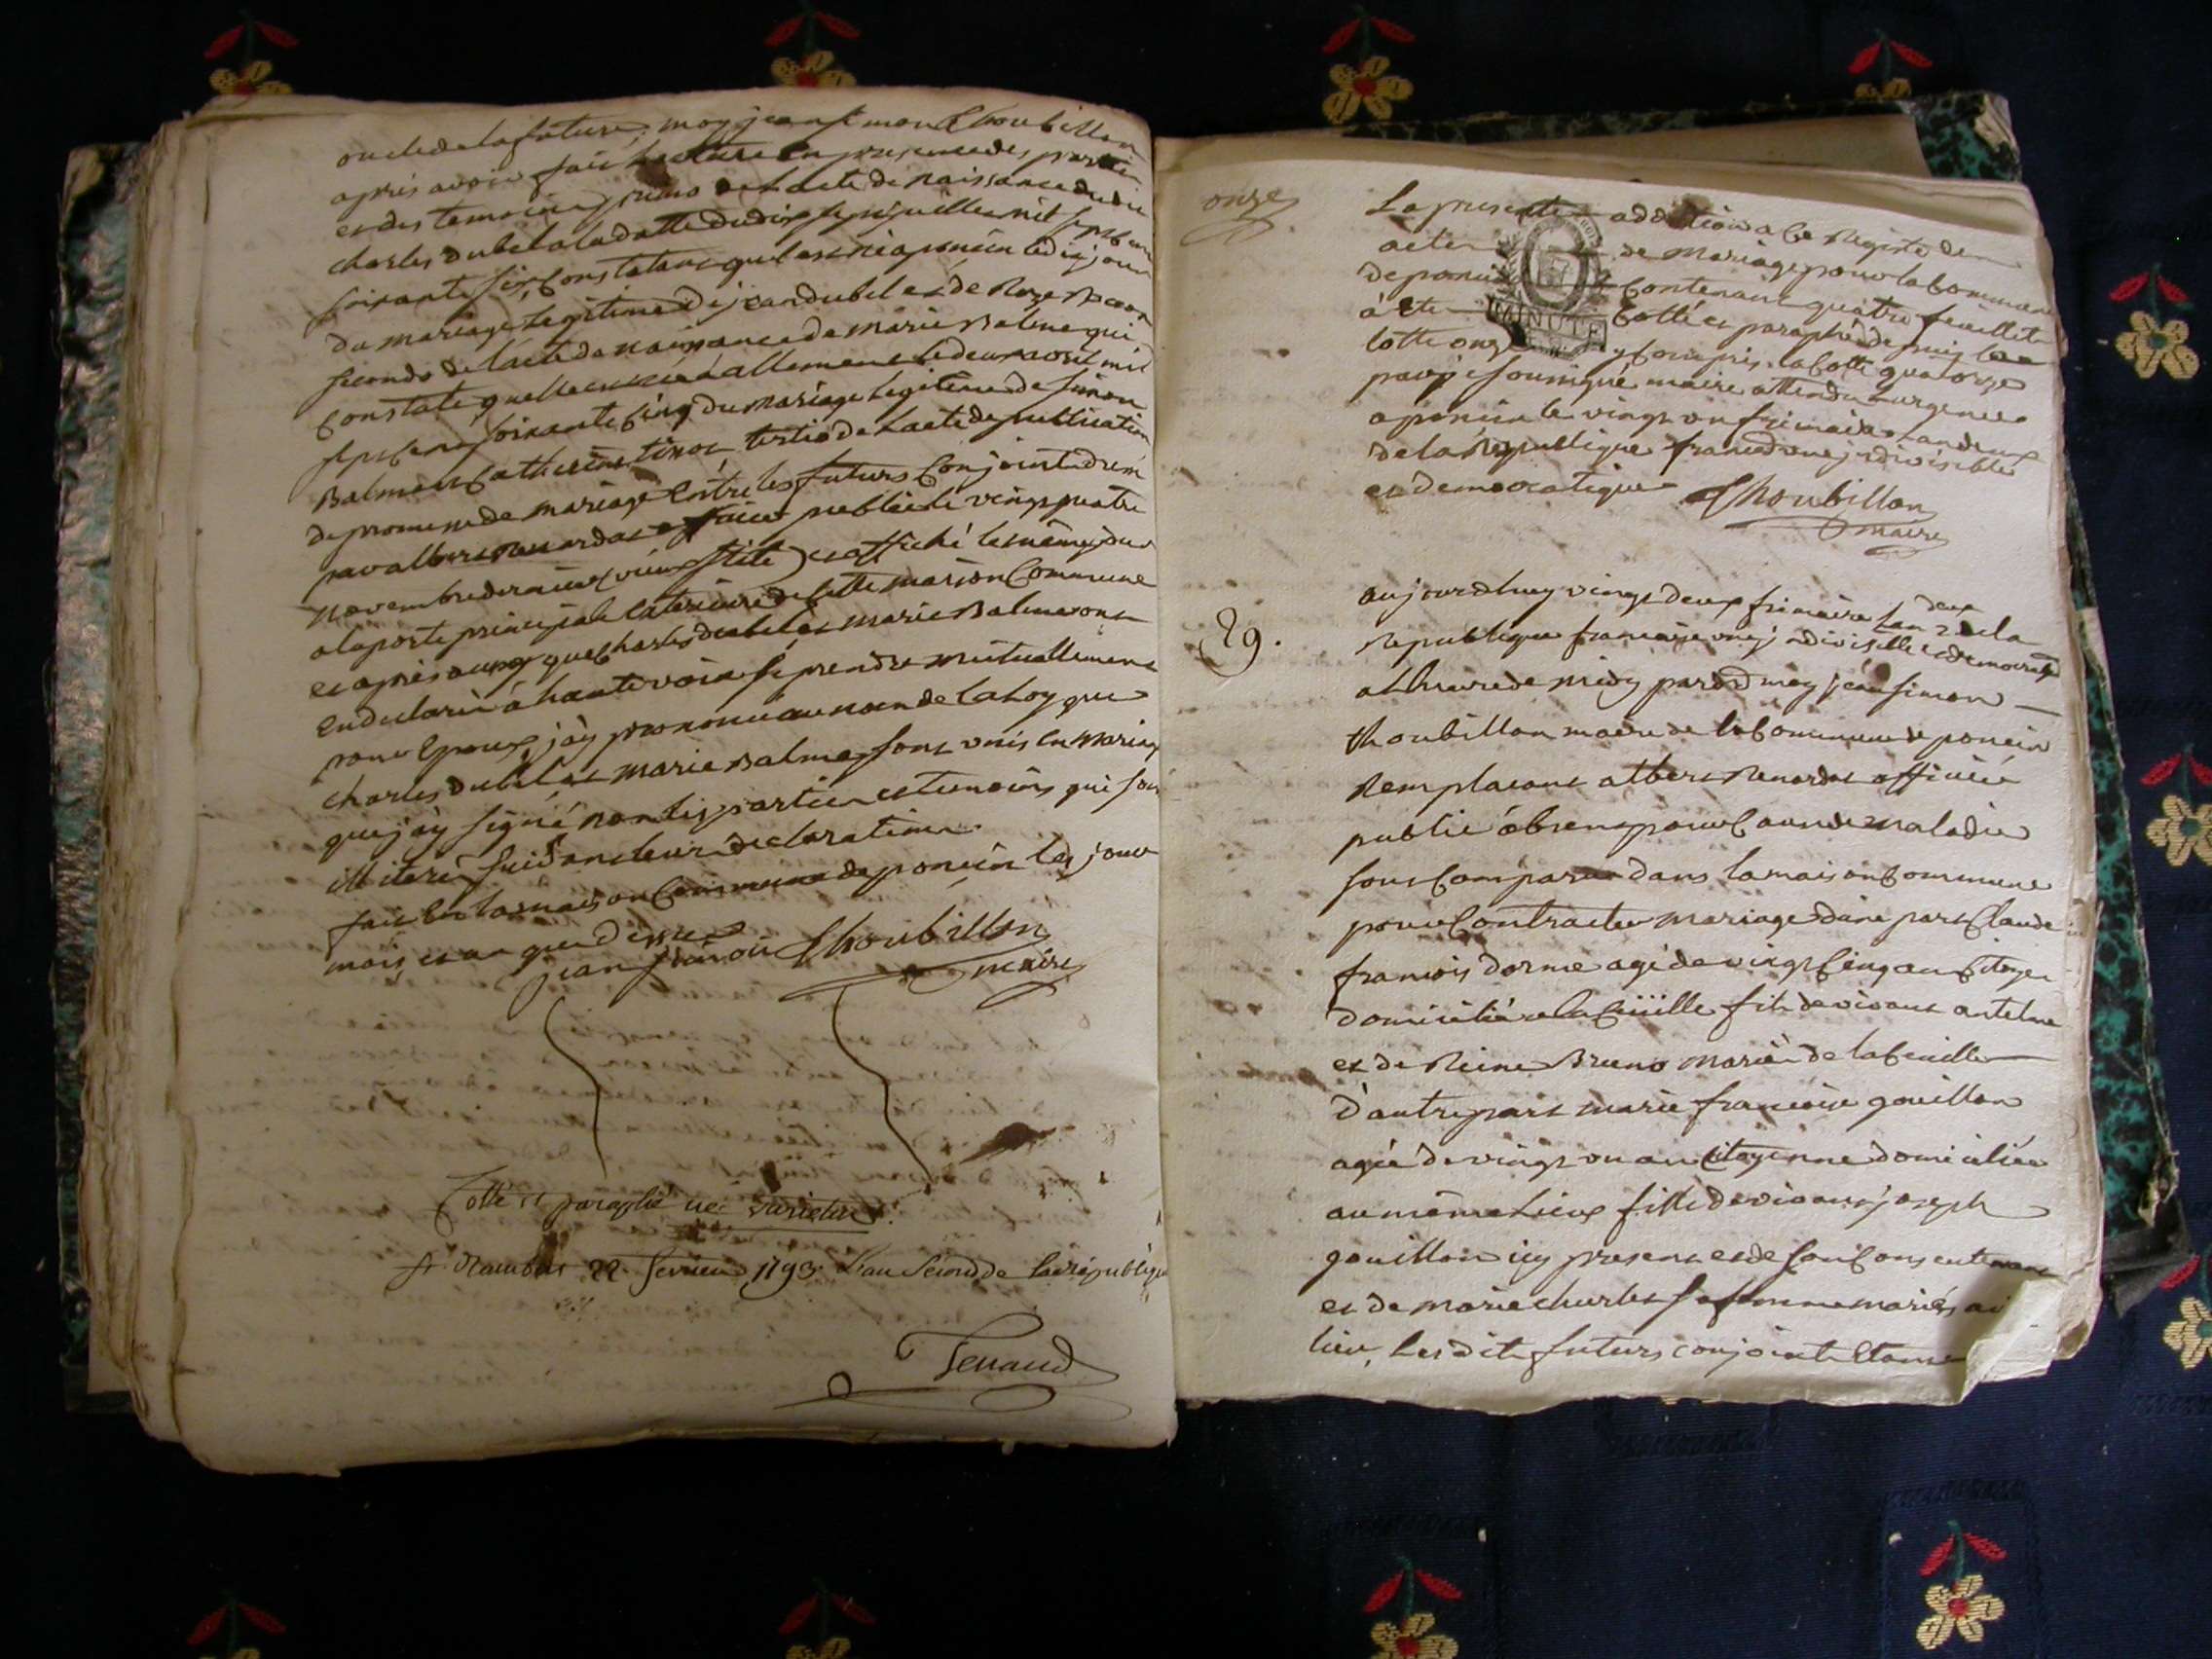 oncle de la future, moy jean simon Thoubillon
après avoir fait lecture en presence des parties
et des temoins primo de l'acte de naissance dudit
charles dubel a la datte du dix sept juillet mil sept cent
soixante six constatant quil est né a poncin ledit jour
du mariage legitime de jean dubel et de Roze
secondo de l'acte de naissance de marie Balme qui
constate quelle est née à allement le deux aoust mil
sept cent soixante cinq du mariage legitime de simon
Balme et Catherine tinot tertio de L'acte de publication
de promesse de mariage entre les futurs conjoints
par albert Renardat publié le vingt quatre
novembre dernier (vieux stile) et affiché le même jour
a la porte principale exterieure de cette maison Commune
et après aussy que Charles dubel et marie Balme ont
eu declaré à haute voix se prendre mutuellement
pour Epoux, j'ay prononcé au nom de la loy que
charles dubel et marie Balme sont unis en mariage
que j'ay signé non les parties et temoins qui sont
illiterés suivant leur declaration
fait en la maison Commune de poncin les jour
mois et an que dessus
jean simon Thoubillon
maire
Cotté et paraphé ne varietur
St Rambert 22 fevrier 1793 L'an second de la république
Tenand
onze
La presente addition a ce Registre de
actes de mariage pour la Commune
de poncin Contenant quatre feuillets
à été MINUTE Cotté et paraphé depuis la
cotte onze y compris la Cotte quatorze
par je soussigné maire attendu l'urgence
a poncin le vingt un frimaire l'an deux
de la Republique francaise une indivisible
et democratique Thoubillon
maire
aujourdhuy vingt deux frimaire l'an deux 2 de la
29. Republique francaise une, indivisible et democratique
a L'heure de midy pardt moy jean simon
thoubillon maire de la Commune de poncin
Remplacant albert Renardat officier
public absent pour Cause de maladie
sont Comparu dans la maison Commune
pour Contracter mariage d'une part Claude
francois dorme agé de vingt cinq an Citoyen
domicilié a la Cuëille fils de vivant antelme
et de Reine Bruno mariés de la Cueille
d'autre part marie francoise gouillon
agée de vingt un an citoyenne domiciliée
au même Lieux fille de vivant joseph
gouillon icy present et de son Consentement
et de marie charles sa femme mariés au
lieu, Les dits futurs conjoints etant